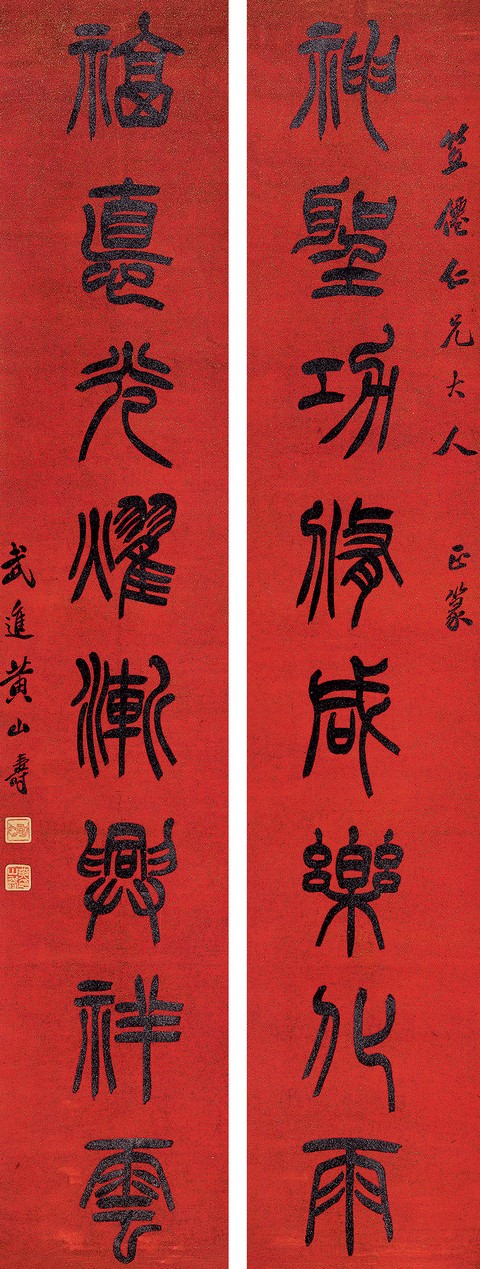 笠僊仁兄大人 正篆
神聖功脩咸樂化雨
福悳光燿漸興祥雲
武進黃山壽